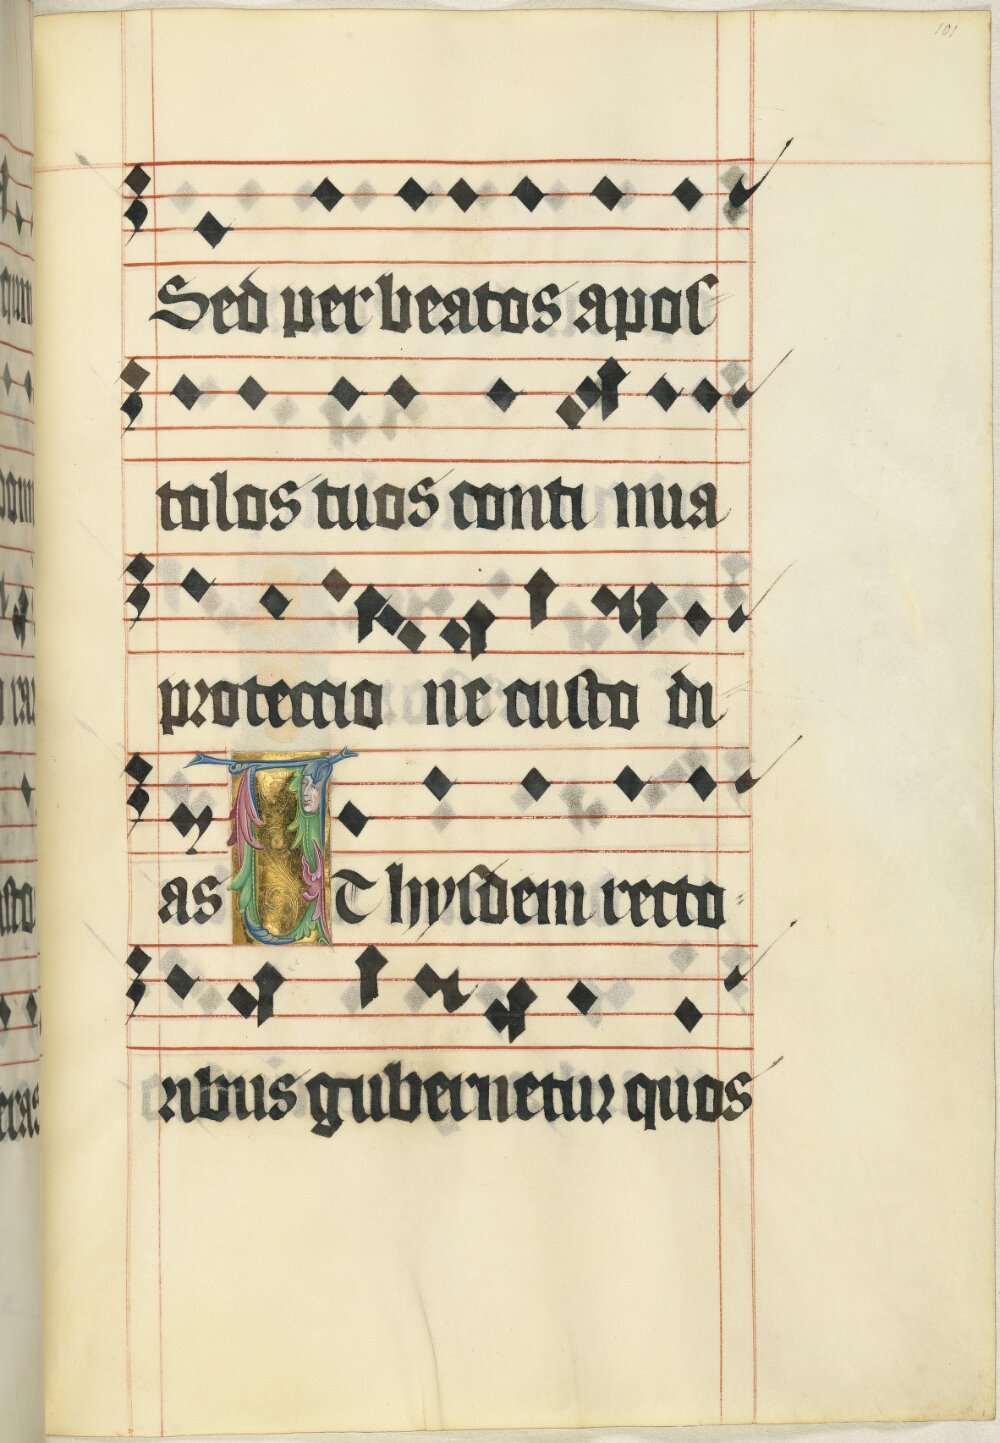 101
Sed per beatos apos
tolos tuos conti nua
proteccio ne custo di
as UT hysdem recto-
ribus gubernetur quos